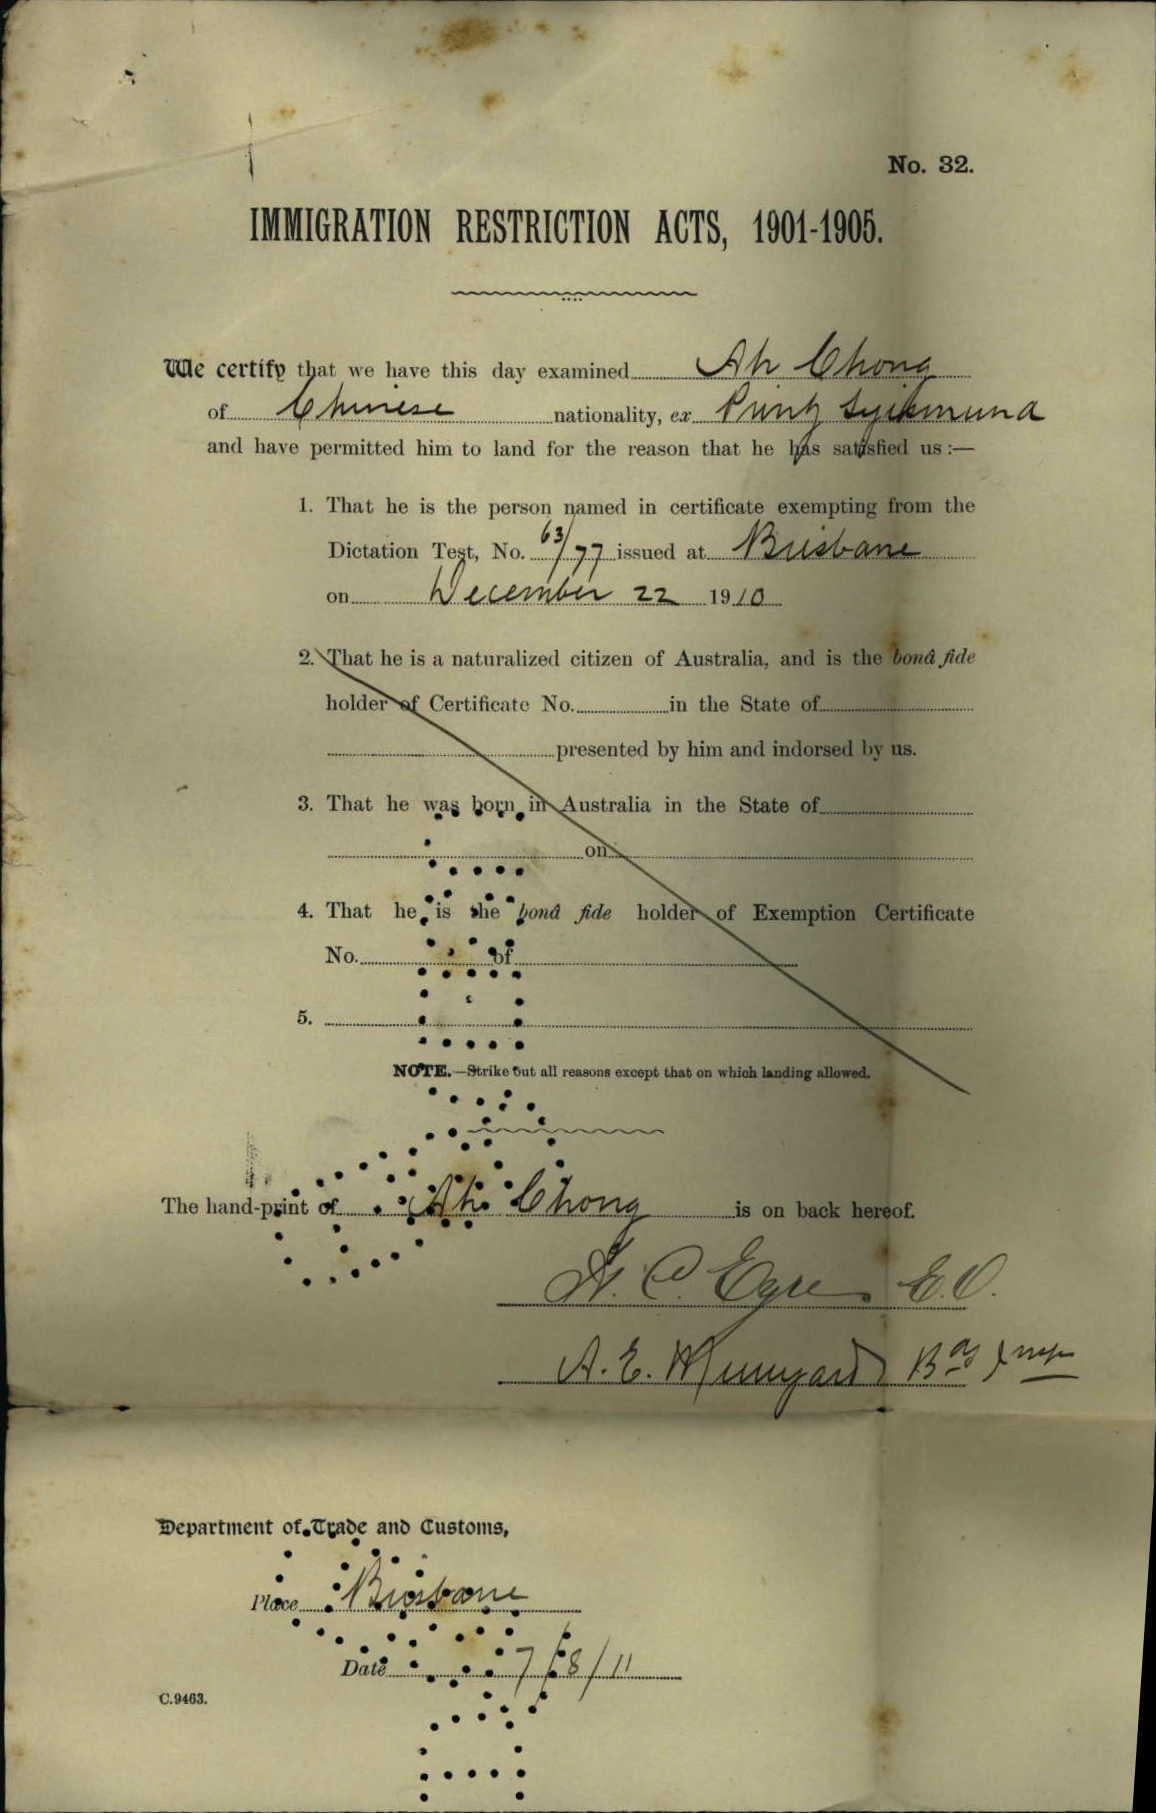 No. 32.
IMMIGRATION RESTRICTION ACTS, 1901-1905.
We certify that we have this day examined Ah Chong
of Chinese nationality, ex Prinz Sigismund
and have permitted him to land for the reason that he has satisfied us :—
1. That he is the person named in certificate exempting from the
Dictation Test, No. 63/77 issued at Brisbane
on December 22 1910
2. That he is a naturalized citizen of Australia, and is the bonâ fide
holder of Certificate No. in the State of
presented by him and indorsed by us.
3. That he was born in Australia in the State of
on
4. That he is the bonâ fide holder of Exemption Certificate
No. of
5.
NOTE.—Strike out all reasons except that on which landing allowed.
The hand-print of Ah Chong is on back hereof.
C. E.O.
A. E.
Department of Trade and Customs,
Place Brisbane
Date 7/8/11
C.9463.